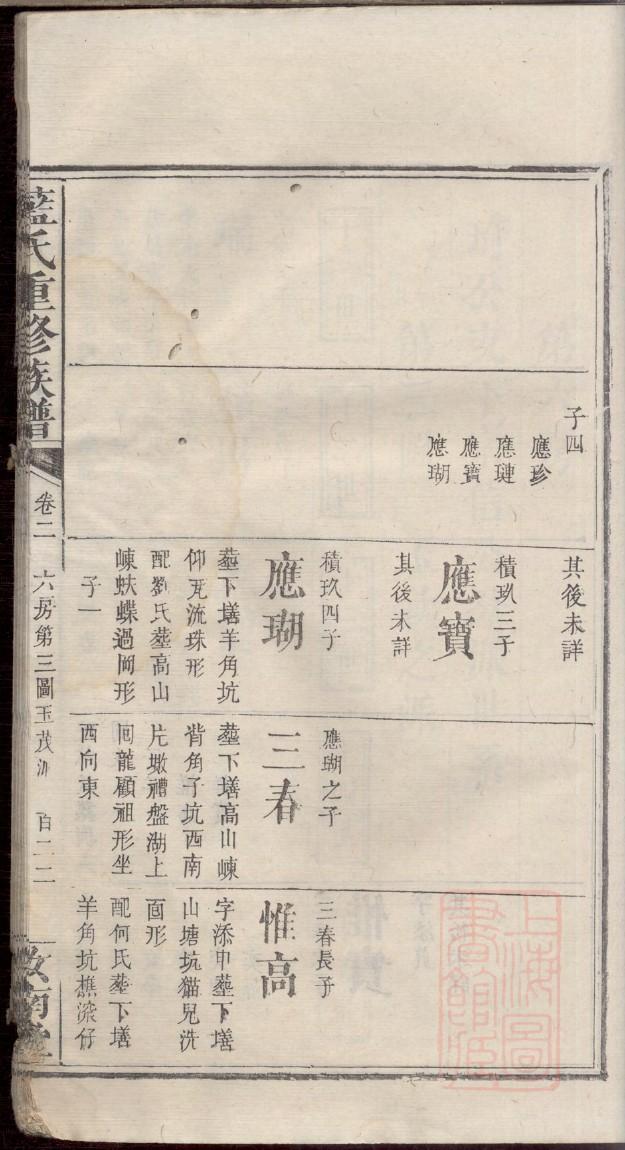 子四
應珍
應璉
應寶
應瑚
其後未詳
積玖三子
應寶
其後未詳
積玖四子
應瑚
塟下墡羊角坑
仰瓦流珠形
配劉氏塟高山
崠蚨蝶過崗形
子一
應瑚之子
三春
塟下墡高山崠
背角子坑西南
片墩禮盤湖上
回龍顧祖形坐
西向東
三春長子
惟高
字添申塟下墡
山塘坑猫兒洗
面形
配何氏塟下墡
羊角坑樵滚仔
藍氏重修族譜
卷二
六房第三圖玉茂派
百二二
汝南堂
上海圖書館藏